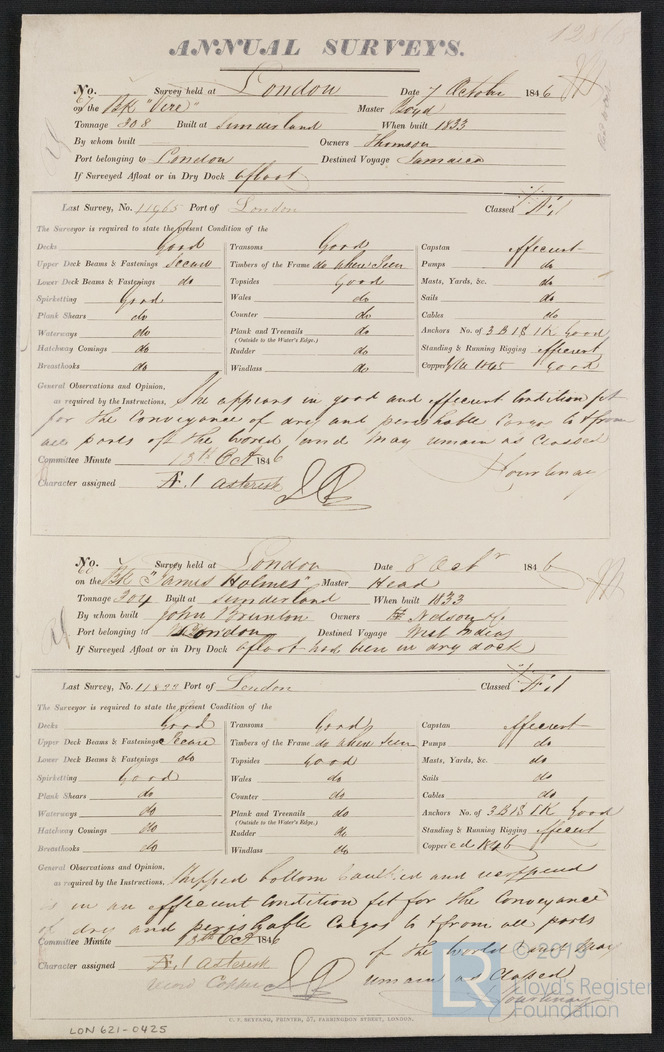 ANNUAL SURVEYS.
No. Survey held at London Date 7 October 1846
on the Bk "Vere" Master Boyd
Tonnage 208 Built at Sunderland When built 1833
By whom built Owners Thomson
Port belonging to London Destined Voyage Jamaica
If Surveyed Afloat or in Dry Dock afloat
Last Survey, No. 11965 Port of London Classed Æ 1
The Surveyor is required to state the present Condition of the
Decks Good Transoms Good Capstan efficient
Upper Deck Beams & Fastenings Secure Timbers of the Frame do when seen Pumps do
Lower Deck Beams & Fastenings do Topsides Good Masts, Yards, &c. do
Spirketting Good Wales do Sails do
Plank Shears do Counter do Cables do
Waterways do Plank and Treenails do Anchors No. of 3 B 1 S 1 K Good
(Outside to the Water's Edge.)
Hatchway Comings do Rudder do Standing & Running Rigging efficient
Breasthooks do Windlass do Copper 1845 Good
General Observations and Opinion,
as required by the Instructions, She appears in good and efficient Condition fit
for the Conveyance of dry and perishable Cargo to & from
all parts of the World, and may remain as Classed
Committee Minute 13th Oct 1846
Courtenay
Character assigned Æ 1 Asterisk
No. Survey held at London Date 8 Octr 1846
on the Bk "James Holmes" Master Head
Tonnage 204 Built at Sunderland When built 1833
By whom built John Brunton Owners Nelson & Co
Port belonging to London Destined Voyage West Indies
If Surveyed Afloat or in Dry Dock afloat had been in dry dock
Last Survey, No. 11833 Port of London Classed Æ 1
The Surveyor is required to state the present Condition of the
Decks Good Transoms Good Capstan efficient
Upper Deck Beams & Fastenings Secure Timbers of the Frame do when seen Pumps do
Lower Deck Beams & Fastenings do Topsides Good Masts, Yards, &c. do
Spirketting Good Wales do Sails do
Plank Shears do Counter do Cables do
Waterways do Plank and Treenails do Anchors No. of 3 B 1 S 1 K Good
(Outside to the Water's Edge.)
Hatchway Comings do Rudder do Standing & Running Rigging efficient
Breasthooks do Windlass do Coppered 1846
General Observations and Opinion,
as required by the Instructions, Stripped bottom Caulked and recoppered
is in an efficient Condition fit for the Conveyance
of dry and perishable Cargos to & from all parts
Committee Minute 13th Oct 1846
of the World and may
Character assigned Æ 1 Asterisk
remain as Classed
Courtenay
© 2019
LR
Lloyd's Register
Foundation
C. F. SEYFANG, PRINTER, 57, FARRINGDON STREET, LONDON.
LON 621-0425